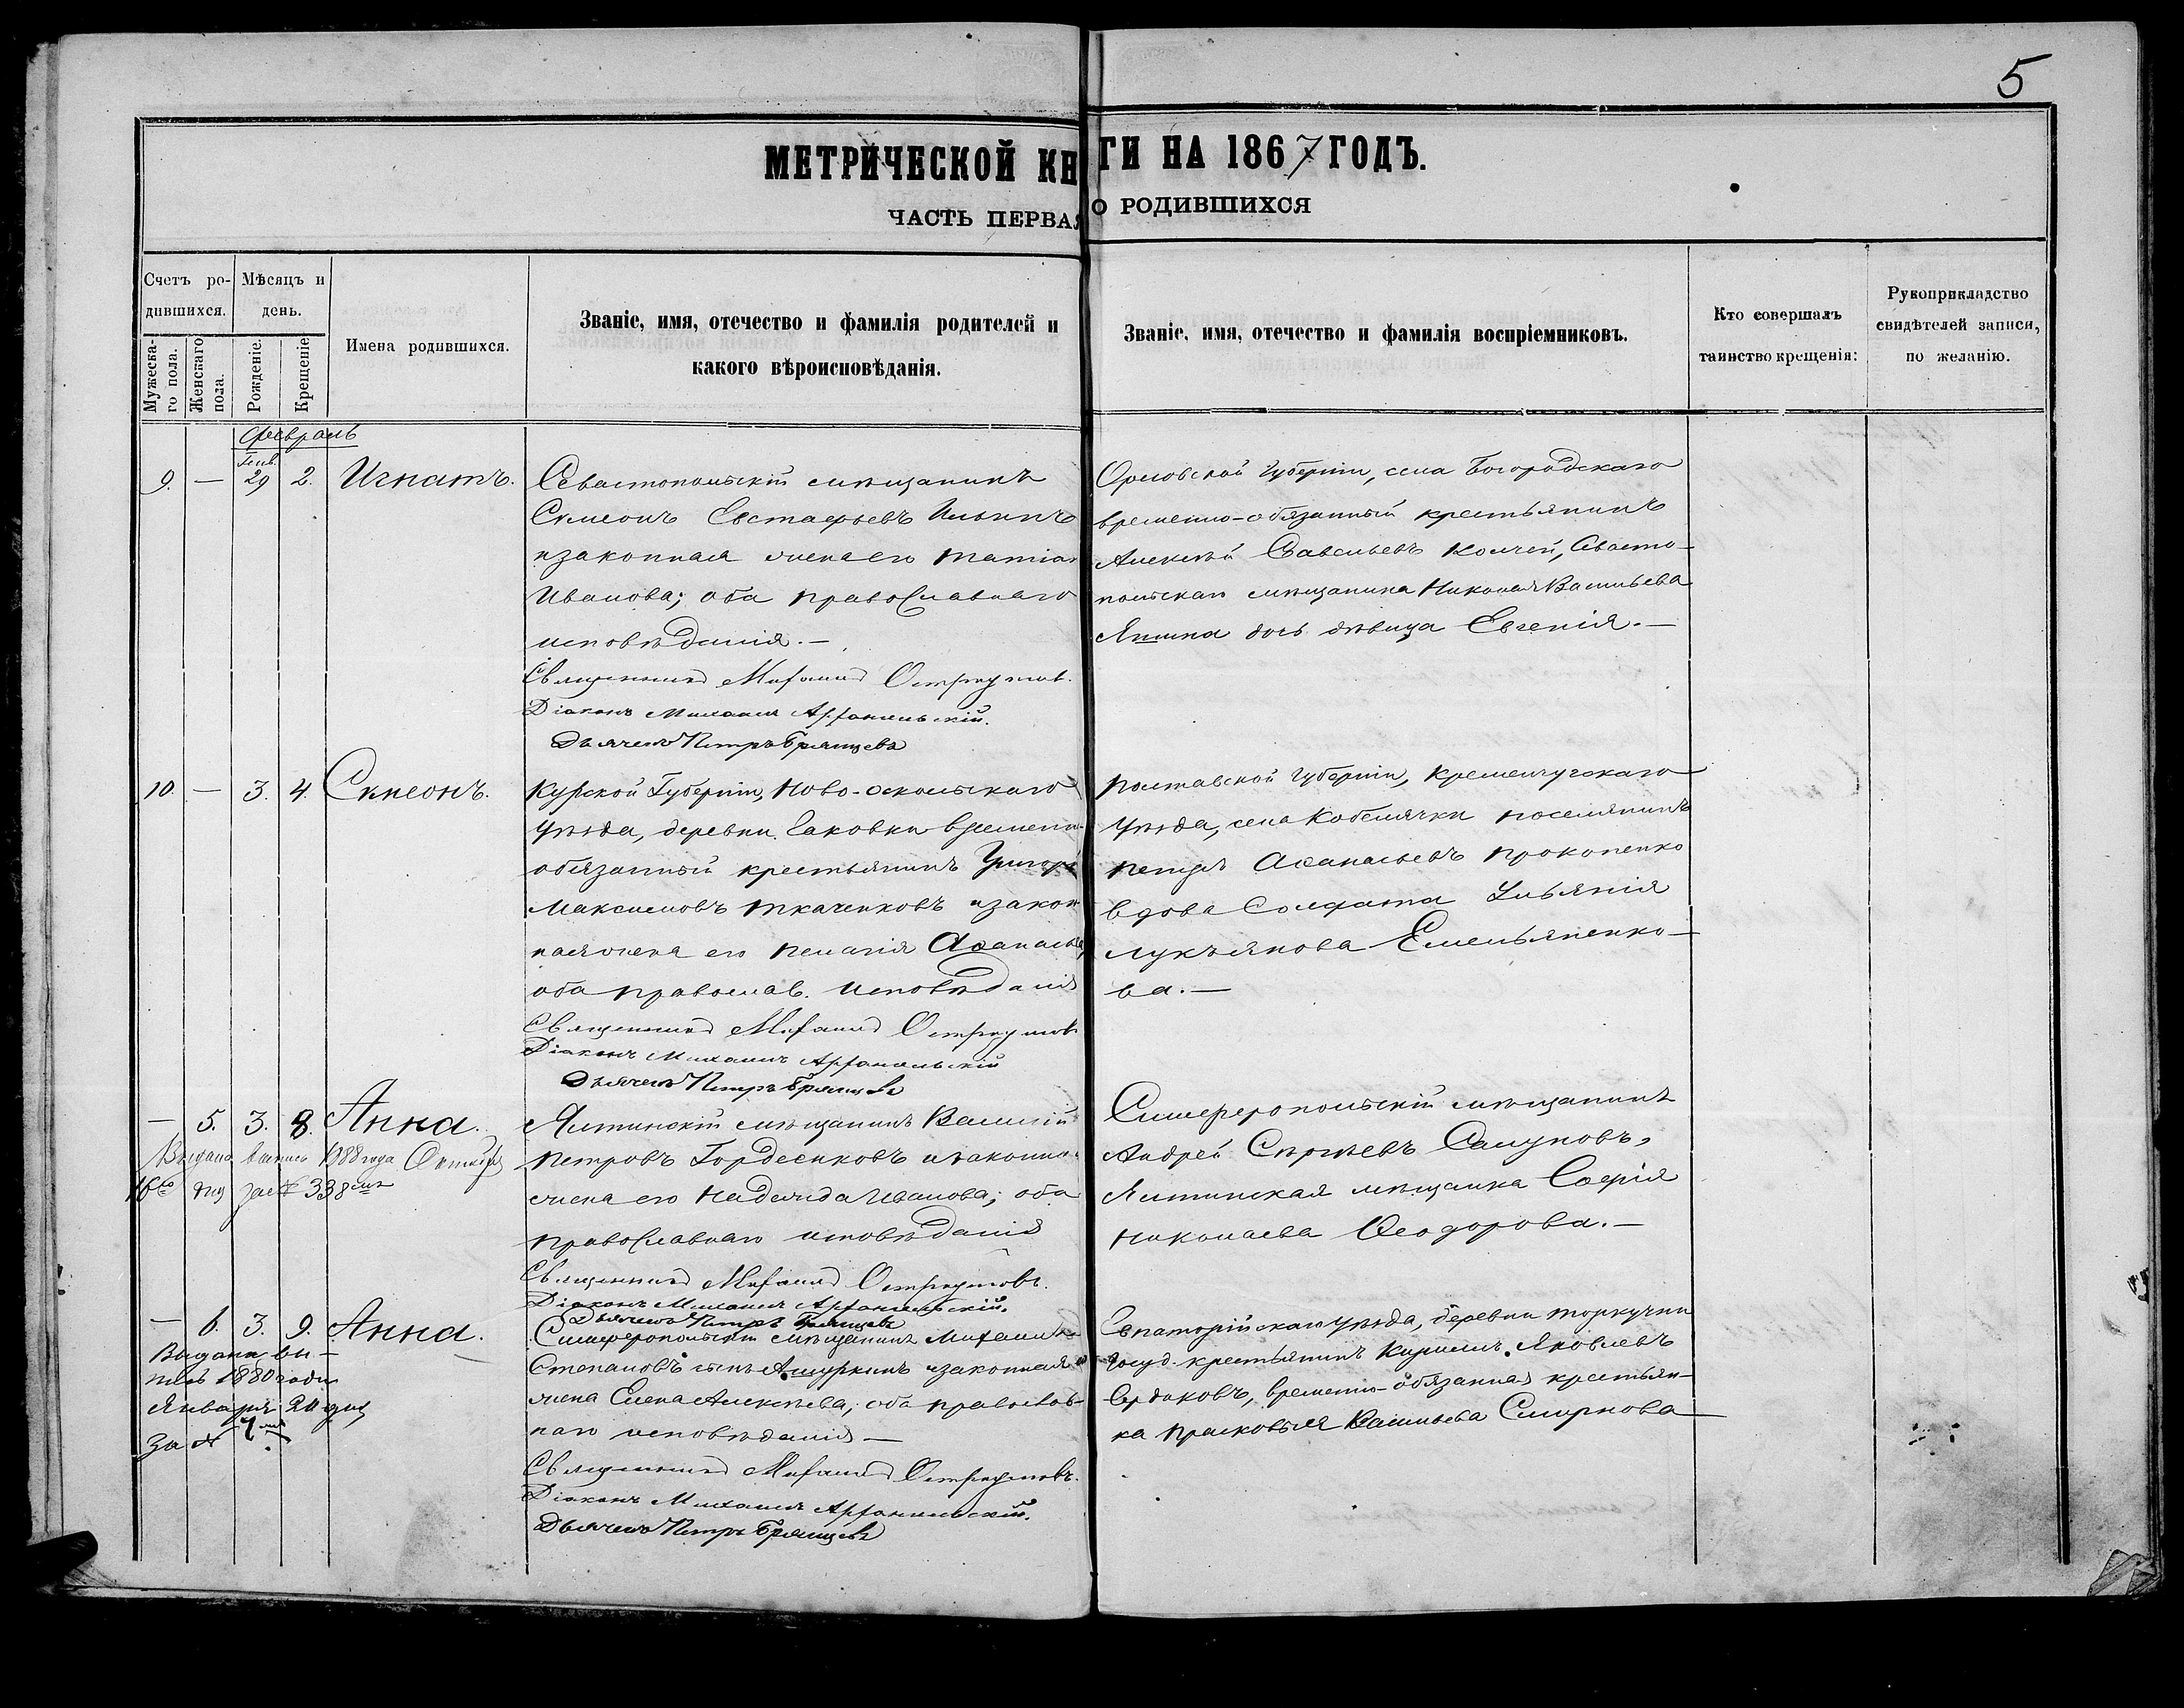 5
МЕТРИЧЕСКОЙ КНИГИ НА 1867 ГОДЪ.
ЧАСТЬ ПЕРВАЯ О РОДИВШИХСЯ
Счетъ родившихся.
Мужескаго пола.
Женскаго пола.
Мѣсяцъ и день.
Рожденіе.
Крещеніе.
Имена родившихся.
Званіе, имя, отечество и фамилія родителей и
какого вѣроисповѣданія.
Званіе, имя, отечество и фамилія воспріемниковъ.
Кто совершалъ
таинство крещенія:
Рукоприкладство
свидѣтелей записи,
по желанію.
Февраль
9. — Генв. 29 2. Игнатъ.
Севастопольскій мѣщанинъ
Симеонъ Евстафьевъ Ильинъ
и законная жена его Татіан
Иванова; оба православнаго
исповѣданія.—
Священникъ Михаилъ
Діаконъ Михаилъ Архангельскій.
Дьячекъ Петръ Брянцевъ
Орловской Губерніи, села Богородскаго
временно-обязанный крестьянинъ
Алексѣй Савельевъ Севасто-
польскаго мѣщанина Николая Васильева
дочь дѣвица Евгенія.—
10. — 3. 4. Симеонъ.
Курской Губерніи, Ново-оскольскаго
Уѣзда, деревни временно-
обязанный крестьянинъ Григорій
Максимовъ Ткаченковъ и закон
ная жена его Пелагія Аѳанасьева,
оба православ. исповѣданія
Священникъ Михаилъ
Діаконъ Михаилъ Архангельскій
Дьячекъ Петръ Брянцевъ
Полтавской Губерніи, Кременчугскаго
Уѣзда, села Кобелячки поселянинъ
Петръ Аѳанасьевъ Прокопенко
вдова Солдата Ульянія
Лукьянова Емельяненко-
ва.—
— 5. 3. 8. Анна.
Выдана выпись 1888 года Октября
16го дня за № 338мъ
Ялтинскій мѣщанинъ Василій
Петровъ Гордеенковъ и законная
жена его Надежда Иванова; оба
православнаго исповѣданія
Священникъ Михаилъ
Діаконъ Михаилъ Архангельскій.
Дьячекъ Петръ Брянцевъ
Симферопольскій мѣщанинъ
Андрей Сергѣевъ Салуновъ,
Ялтинская мѣщанка Софія
Николаева Ѳеодорова.—
— 6. 3. 9. Анна.
Выдана вы-
пись 1880 года
Января 20 дня
за № 7мъ
Симферопольскій мѣщанинъ Михаилъ
Степановъ сынъ Ашуркинъ и законная его
жена Елена Алексѣева; оба православ-
наго исповѣданія —
Священникъ Михаилъ
Діаконъ Михаилъ Архангельскій.
Дьячекъ Петръ Брянцевъ
Евпаторійскаго Уѣзда, деревни
госуд. крестьянинъ Кириллъ Яковлевъ
Сердюковъ, временно-обязанная крестьян-
ка Прасковья Васильева Смирнова